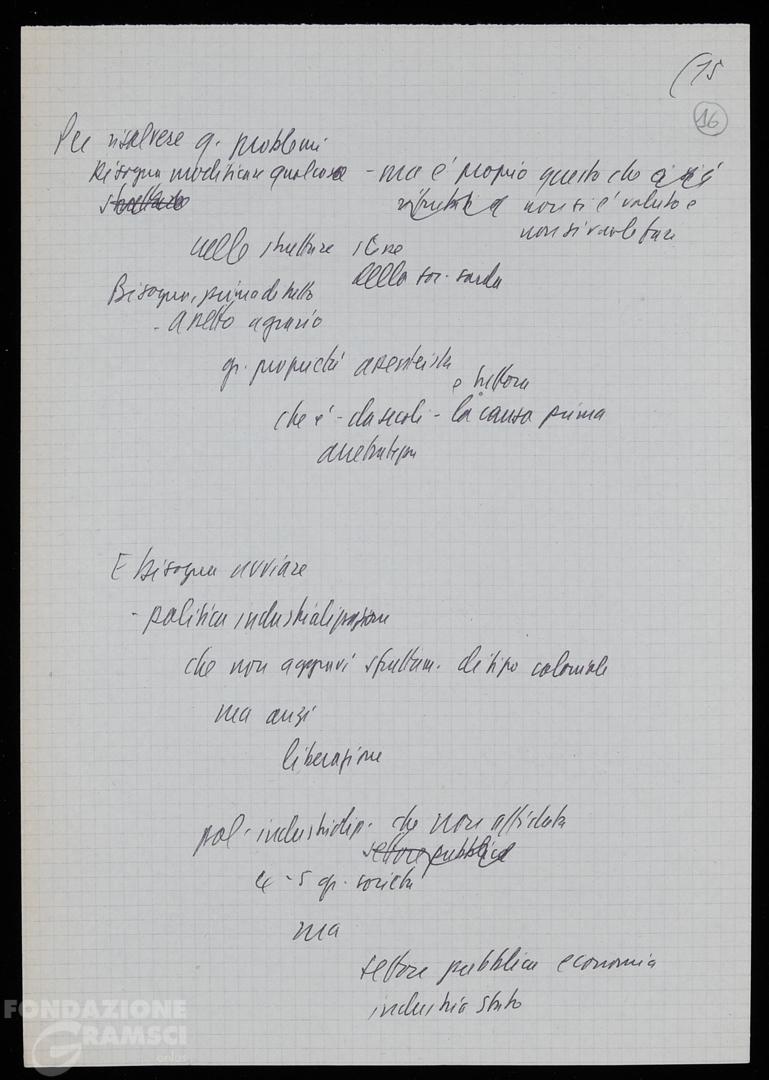 (15
16
Per risolvere q. problemi
Bisogna modificare qualcosa - ma è proprio questo che ci si è
strutture rifiutati e non si è voluto e
non si vuole fare
nelle strutture stesse
della soc. sarda
Bisogna, prima di tutto
- assetto agrario
gr. proprietà assenteista
e tuttora
che è - da secoli - la causa prima
arretratezza
E bisogna avviare
- politica industrializzazione
che non aggravi sfruttam. di tipo coloniale
ma anzi
liberazione
pol. industrializz. che non affidata
settore pubblico
4 - 5 gr. società
ma
settore pubblico economia
industria stato
FONDAZIONE
GRAMSCI
onlus